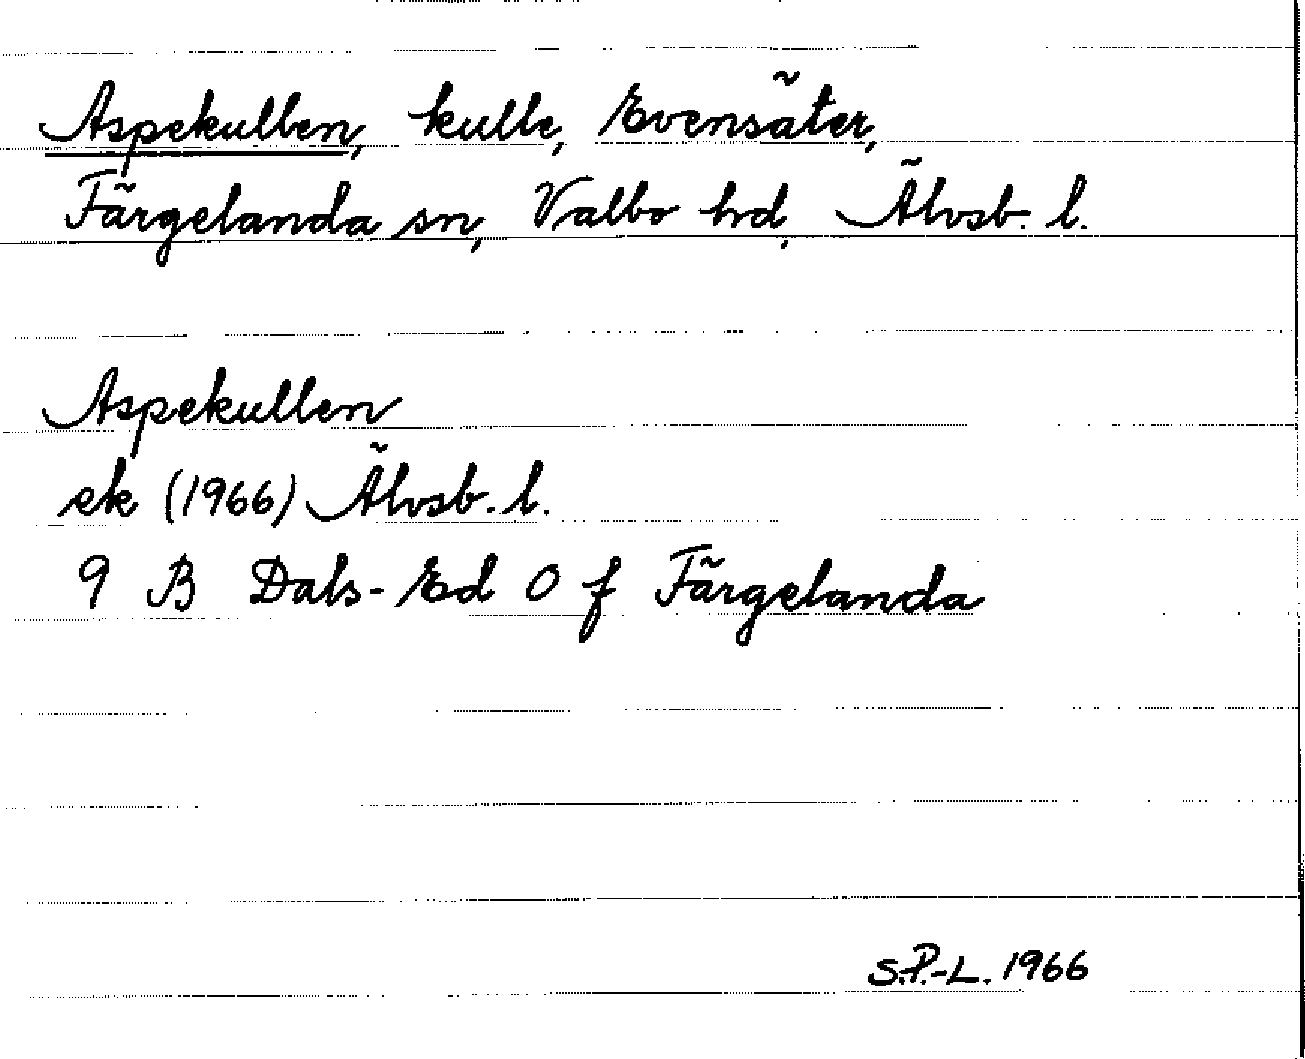 Aspekullen, kulle, Evensäter,
Färgelanda sn, Valbo hd, Älvsb. l.
Aspekullen
ek (1966) Älvsb. l.
9 B Dals-Ed 0 f Färgelanda
S.P.-L. 1966